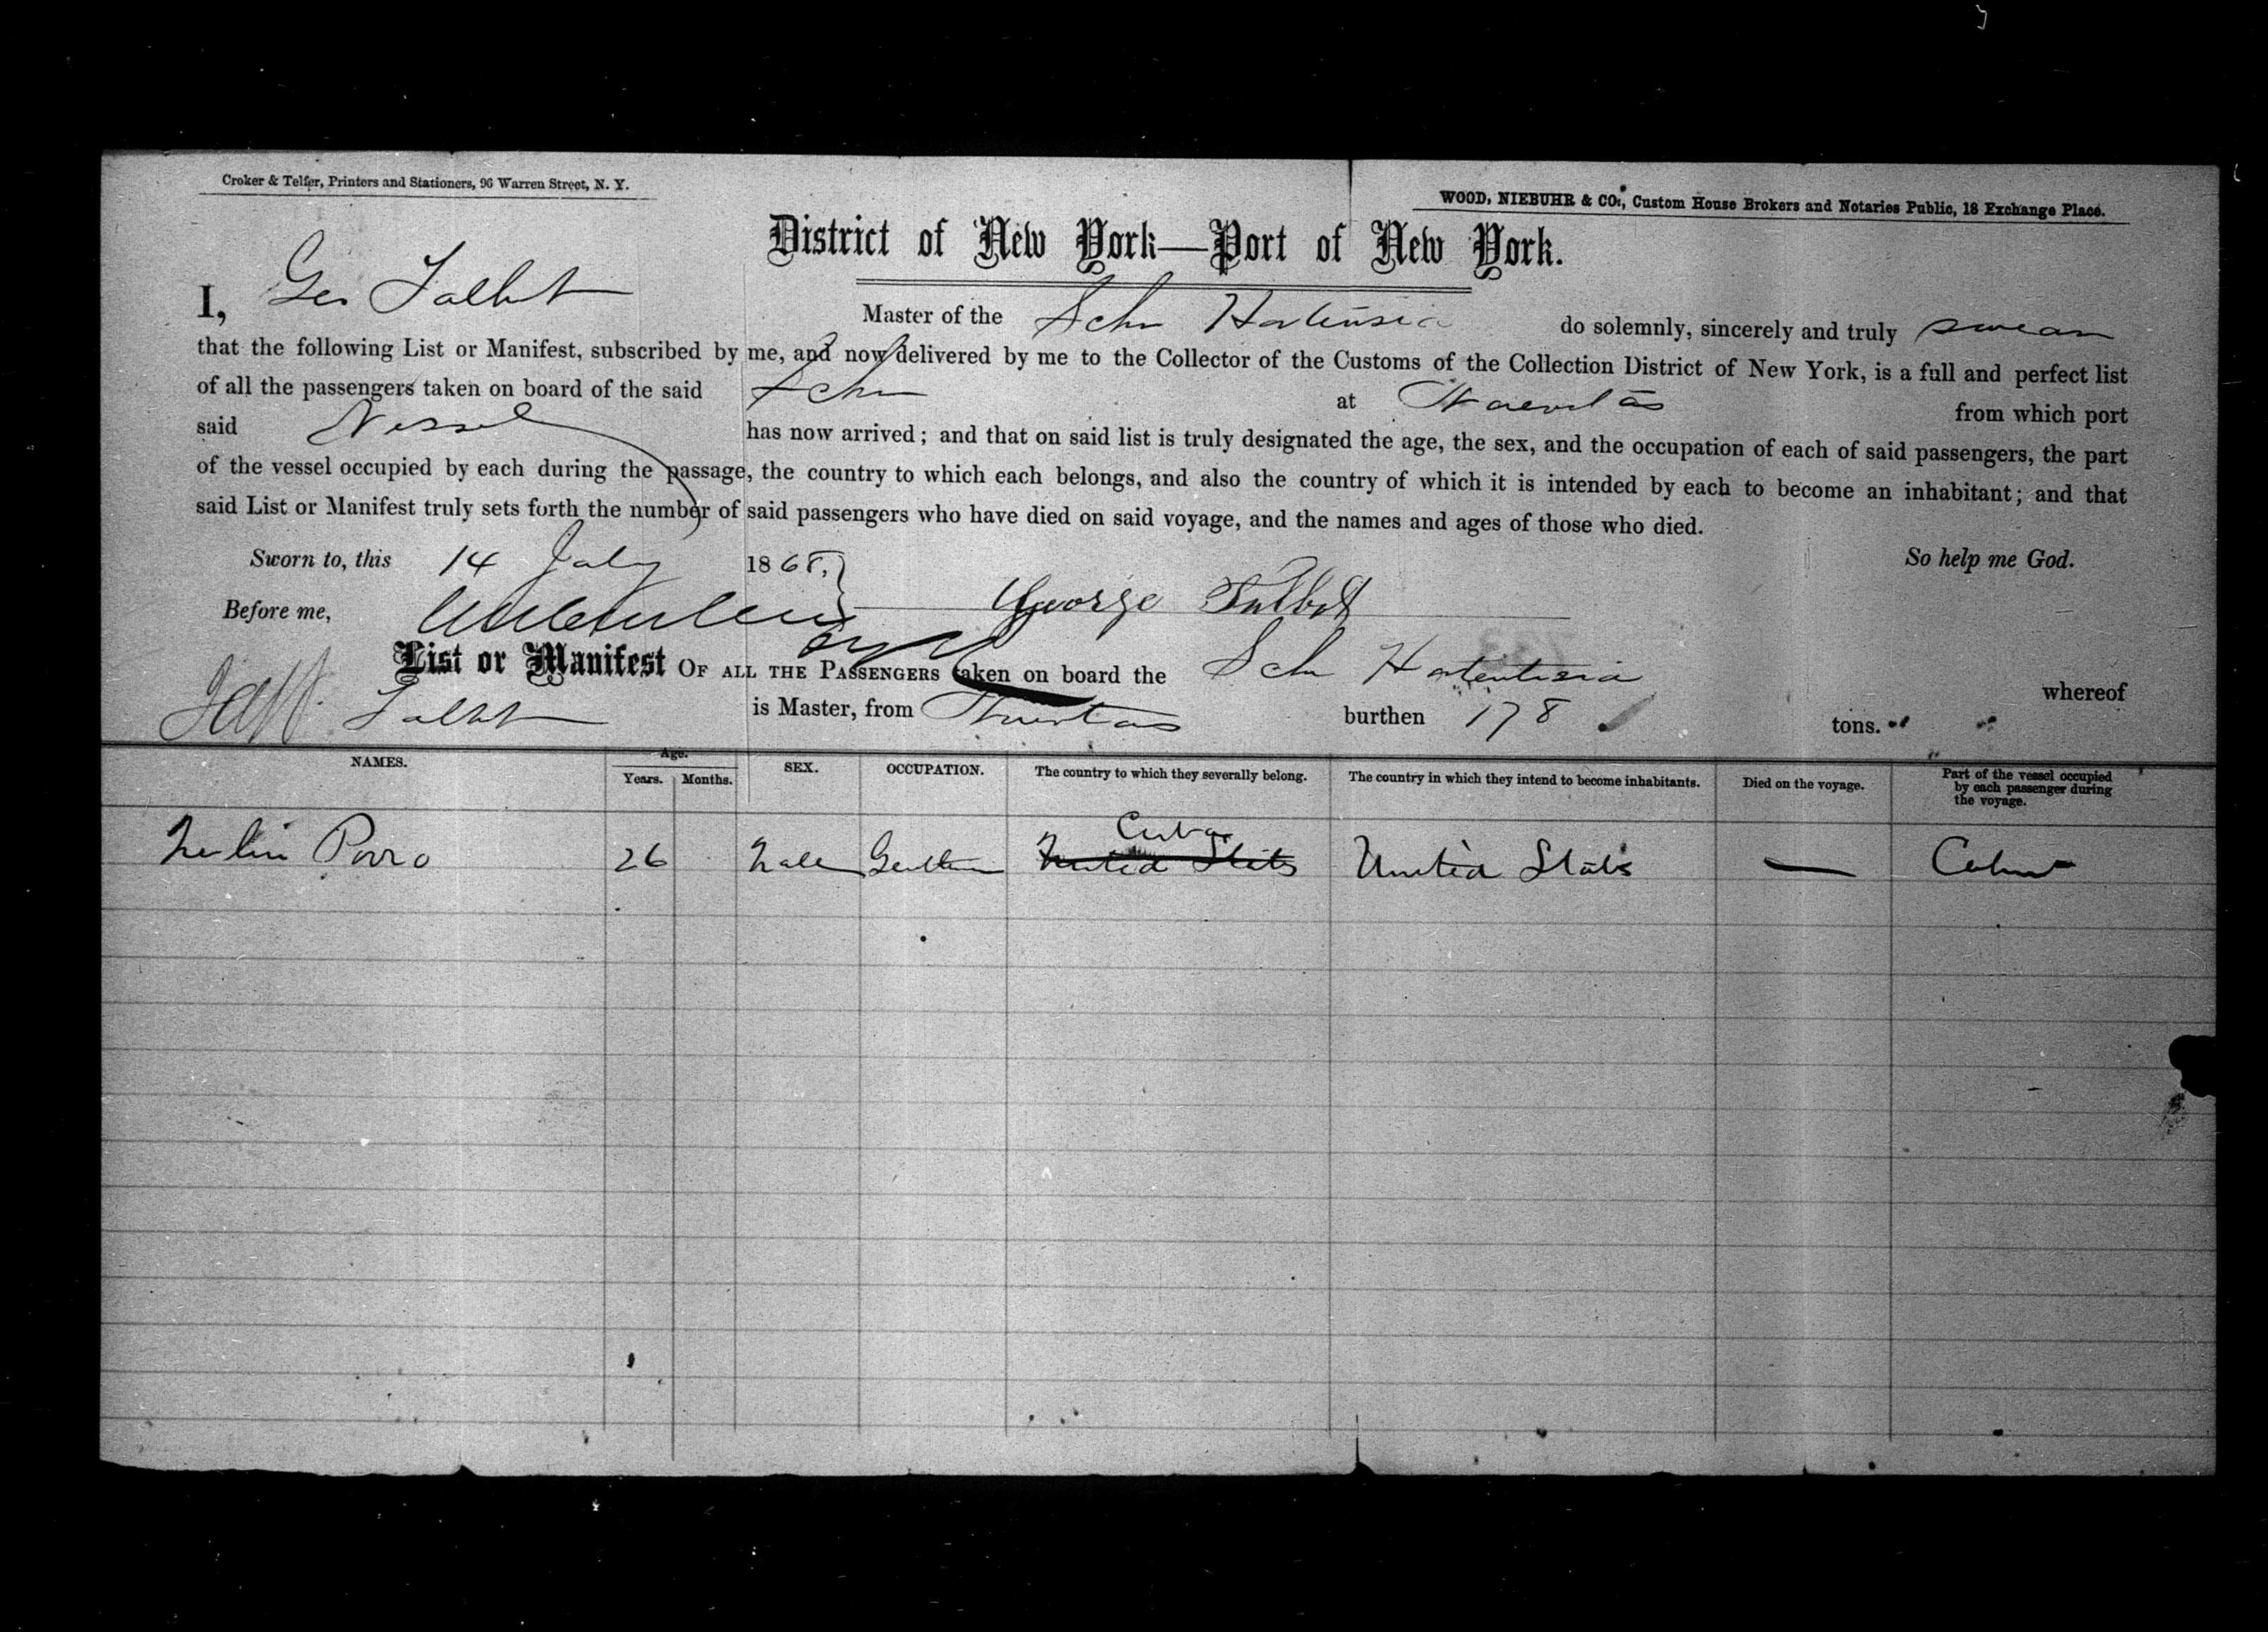 Croker & Telfer, Printers and Stationers, 96 Warren Street, N. Y.
WOOD, NIEBUHR & CO., Custom House Brokers and Notaries Public, 18 Exchange Place.
District of New York—Port of New York.
I, Geo Talbot Master of the Schr Hortensia do solemnly, sincerely and truly swear
that the following List or Manifest, subscribed by me, and now delivered by me to the Collector of the Customs of the Collection District of New York, is a full and perfect list
of all the passengers taken on board of the said Schr at from which port
said Vessel has now arrived; and that on said list is truly designated the age, the sex, and the occupation of each of said passengers, the part
of the vessel occupied by each during the passage, the country to which each belongs, and also the country of which it is intended by each to become an inhabitant; and that
said List or Manifest truly sets forth the number of said passengers who have died on said voyage, and the names and ages of those who died.
Sworn to, this 14 July 1868, So help me God.
Before me, George Talbot
List or Manifest OF ALL THE PASSENGERS taken on board the Schr whereof
Talbot is Master, from burthen 178 tons.
NAMES. Age. Years. Months. SEX. OCCUPATION. The country to which they severally belong. The country in which they intend to become inhabitants. Died on the voyage. Part of the vessel occupied by each passenger during the voyage.
Cuba
Porro 26 Male United States United States — Cabin